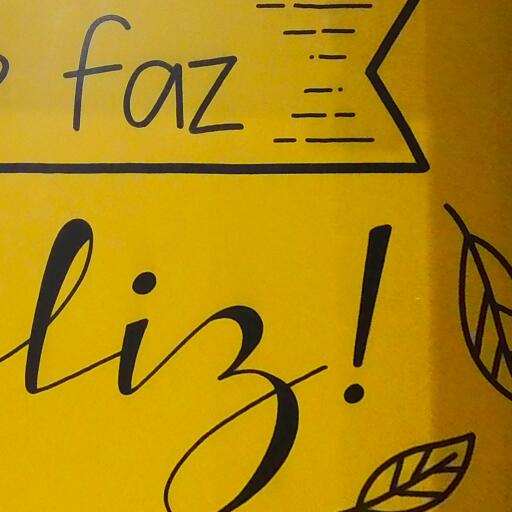 faz
liz!